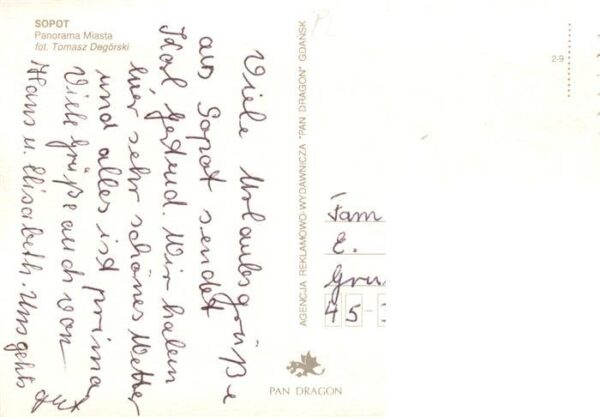 SOPOT
Panorama Miasta
fot. Tomasz Degórski
Viele Urlaubsgrüße
aus Sopot sendet
Gertrud. Wir haben
hier sehr schönes Wetter
und alles ist prima,
Viele Grüße auch von
Hans u. Elisabeth. Uns gehts gut
AGENCJA REKLAMOWO-WYDAWNICZA "PAN DRAGON" GDAŃSK
PAN DRAGON
PL
2-9
Fam
E.
Gru
45-